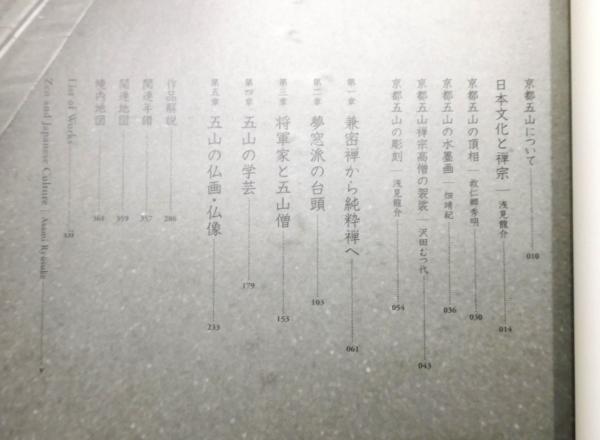 京都五山について 010
日本文化と禅宗 浅見龍介 014
京都五山の頂相 救仁郷秀明 030
京都五山の水墨画 畑靖紀 036
京都五山禅宗高僧の袈裟 沢田むつ代 043
京都五山の彫刻 浅見龍介 054
第一章 兼密禅から純粋禅へ 061
第二章 夢窓派の台頭 103
第三章 将軍家と五山僧 153
第四章 五山の学芸 179
第五章 五山の仏画・仏像 233
作品解説 286
関連年譜 357
関連地図 359
境内地図 361
List of Works xiii
Zen and Japanese Culture Asami Ryusuke v